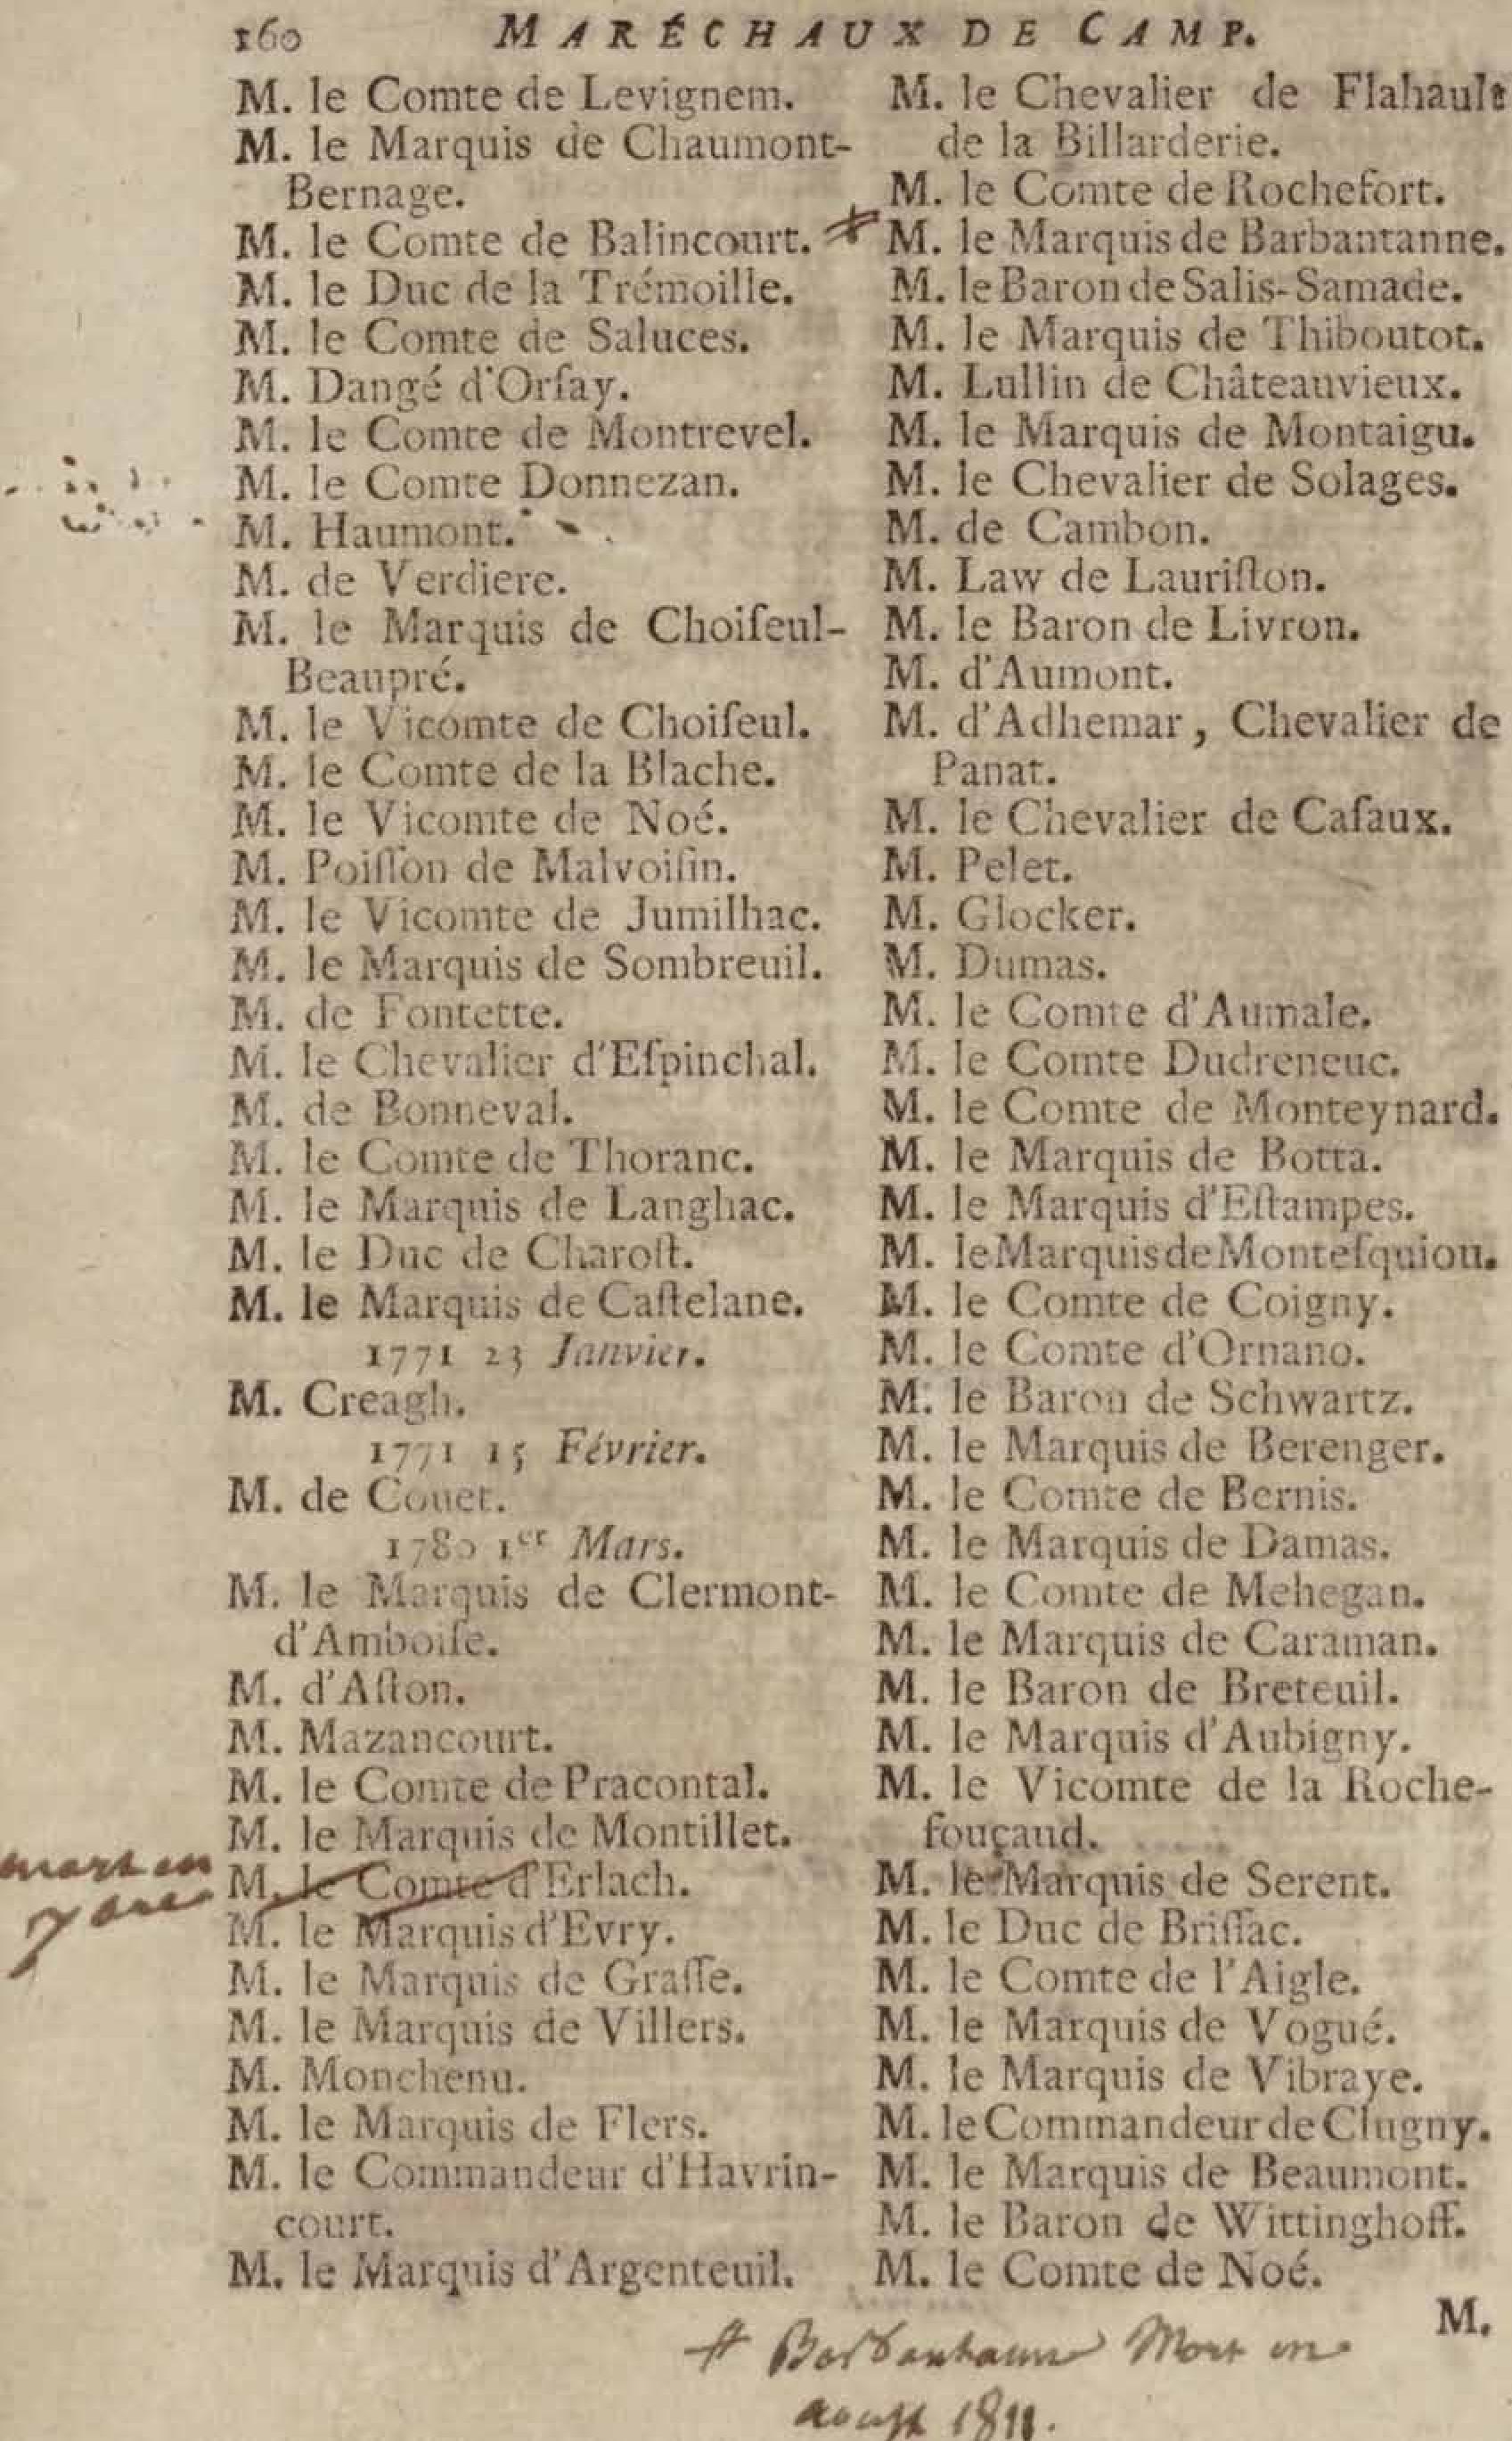 160 MARÉCHAUX DE CAMP.
M. le Comte de Levignem.
M. le Marquis de Chaumont-
Bernage.
M. le Comte de Balincourt.
M. le Duc de la Trémoille.
M. le Comte de Saluces.
M. Dangé d'Orſay.
M. le Comte de Montrevel.
M. le Comte Donnezan.
M. Haumont.
M. de Verdiere.
M. le Marquis de Choiſeul-
Beaupré.
M. le Vicomte de Choiſeul.
M. le Comte de la Blache.
M. le Vicomte de Noé.
M. Poiſſon de Malvoiſin.
M. le Vicomte de Jumilhac.
M. le Marquis de Sombreuil.
M. de Fontette.
M. le Chevalier d'Eſpinchal.
M. de Bonneval.
M. le Comte de Thoranc.
M. le Marquis de Langhac.
M. le Duc de Charoſt.
M. le Marquis de Caſtelane.
1771 23 Janvier.
M. Creagh.
1771 15 Février.
M. de Couet.
1780 1er Mars.
M. le Marquis de Clermont-
d'Amboiſe.
M. d'Aſton.
M. Mazancourt.
M. le Comte de Pracontal.
M. le Marquis de Montillet.
mort en
M. le Comte d'Erlach.
7bre
M. le Marquis d'Evry.
M. le Marquis de Graſſe.
M. le Marquis de Villers.
M. Monchenu.
M. le Marquis de Flers.
M. le Commandeur d'Havrin-
court.
M. le Marquis d'Argenteuil.
M. le Chevalier de Flahault
de la Billarderie.
M. le Comte de Rochefort.
# M. le Marquis de Barbantanne.
M. le Baron de Salis-Samade.
M. le Marquis de Thiboutot.
M. Lullin de Châteauvieux.
M. le Marquis de Montaigu.
M. le Chevalier de Solages.
M. de Cambon.
M. Law de Lauriſton.
M. le Baron de Livron.
M. d'Aumont.
M. d'Adhemar, Chevalier de
Panat.
M. le Chevalier de Caſaux.
M. Pelet.
M. Glocker.
M. Dumas.
M. le Comte d'Aumale.
M. le Comte Dudreneuc.
M. le Comte de Monteynard.
M. le Marquis de Botta.
M. le Marquis d'Eſtampes.
M. le Marquis de Monteſquiou.
M. le Comte de Coigny.
M. le Comte d'Ornano.
M. le Baron de Schwartz.
M. le Marquis de Berenger.
M. le Comte de Bernis.
M. le Marquis de Damas.
M. le Comte de Mehegan.
M. le Marquis de Caraman.
M. le Baron de Breteuil.
M. le Marquis d'Aubigny.
M. le Vicomte de la Roche-
fouçaud.
M. le Marquis de Serent.
M. le Duc de Briſſac.
M. le Comte de l'Aigle.
M. le Marquis de Vogué.
M. le Marquis de Vibraye.
M. le Commandeur de Clugny.
M. le Marquis de Beaumont.
M. le Baron de Wittinghoff.
M. le Comte de Noé.
M.
# Mort en
aoust 1811.